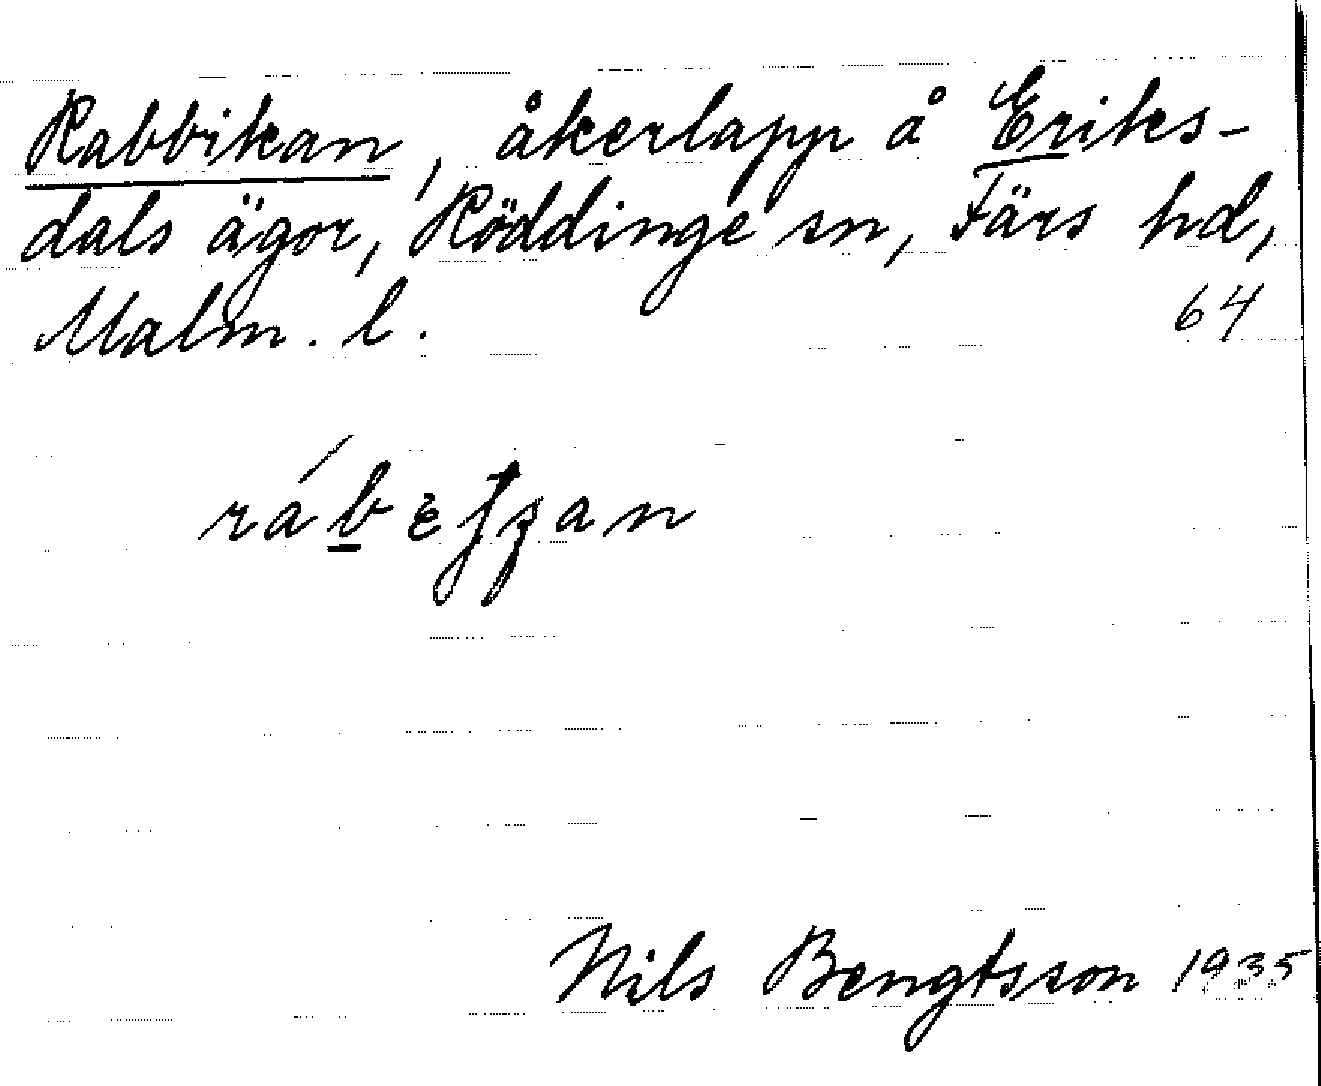 Rabbikan, åkerlapp å Eriks-
dals ägor, Röddinge sn, Färs hd,
Malm. l. 64
Nils Bengtsson 1935